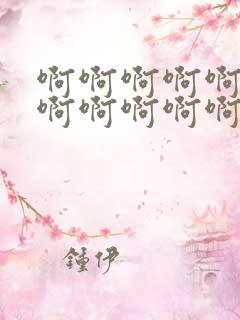 啊啊啊啊啊
啊啊啊啊啊
鍾伊